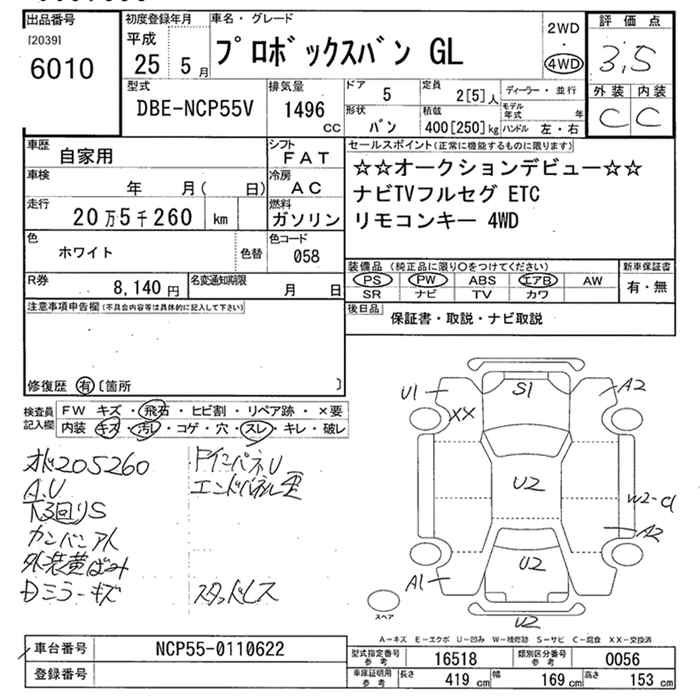 出品番号
[2039]
6010
初度登録年月
平成
25 5月
車名・グレード
プロボックスバン GL
2WD
・
4WD
評価点
3,5
外装 内装
C C
型式
DBE-NCP55V
排気量
1496
CC
ドア
5
定員
2[5]人
形状
バン
積載
400[250]kg
ディーラー・並行
モデル年式 年
ハンドル 左・右
車歴
自家用
シフト
FAT
車検
年 月( 日)
冷房
AC
走行
20万5千260 km
燃料
ガソリン
色
ホワイト
色替
色コード
058
R券
8,140円
名変通知期限
月 日
セールスポイント(正常に機能するものに限ります)
☆☆オークションデビュー☆☆
ナビTVフルセグ ETC
リモコンキー 4WD
装備品 (純正品に限り○をつけてください)
PS PW ABS エアB AW
SR ナビ TV カワ
新車保証書
有・無
後日品
保証書・取説・ナビ取説
注意事項申告欄(不具合内容等は具体的に記入して下さい)
修復歴 有 [箇所 ]
検査員記入欄
FW キズ・飛石・ヒビ割・リペア跡・×要
内装 キズ・汚レ・コゲ・穴・スレ・キレ・破レ
オド205260
A.U
下回りS
カンバンアト
外装黄ばみ
Dミラーキズ
インパネU
エンドパネル歪
スタッドレス
U1
S1
A2
XX
U2
W2-C1
A2
U2
A1
U2
スペア
A-キズ E-エクボ U-凹み W-補修跡 S-サビ C-腐食 XX-交換済
車台番号
NCP55-0110622
登録番号
型式指定番号
参考
16518
類別区分番号
参考
0056
車庫証明用
参考
長さ
419 cm
幅
169 cm
高さ
153 cm